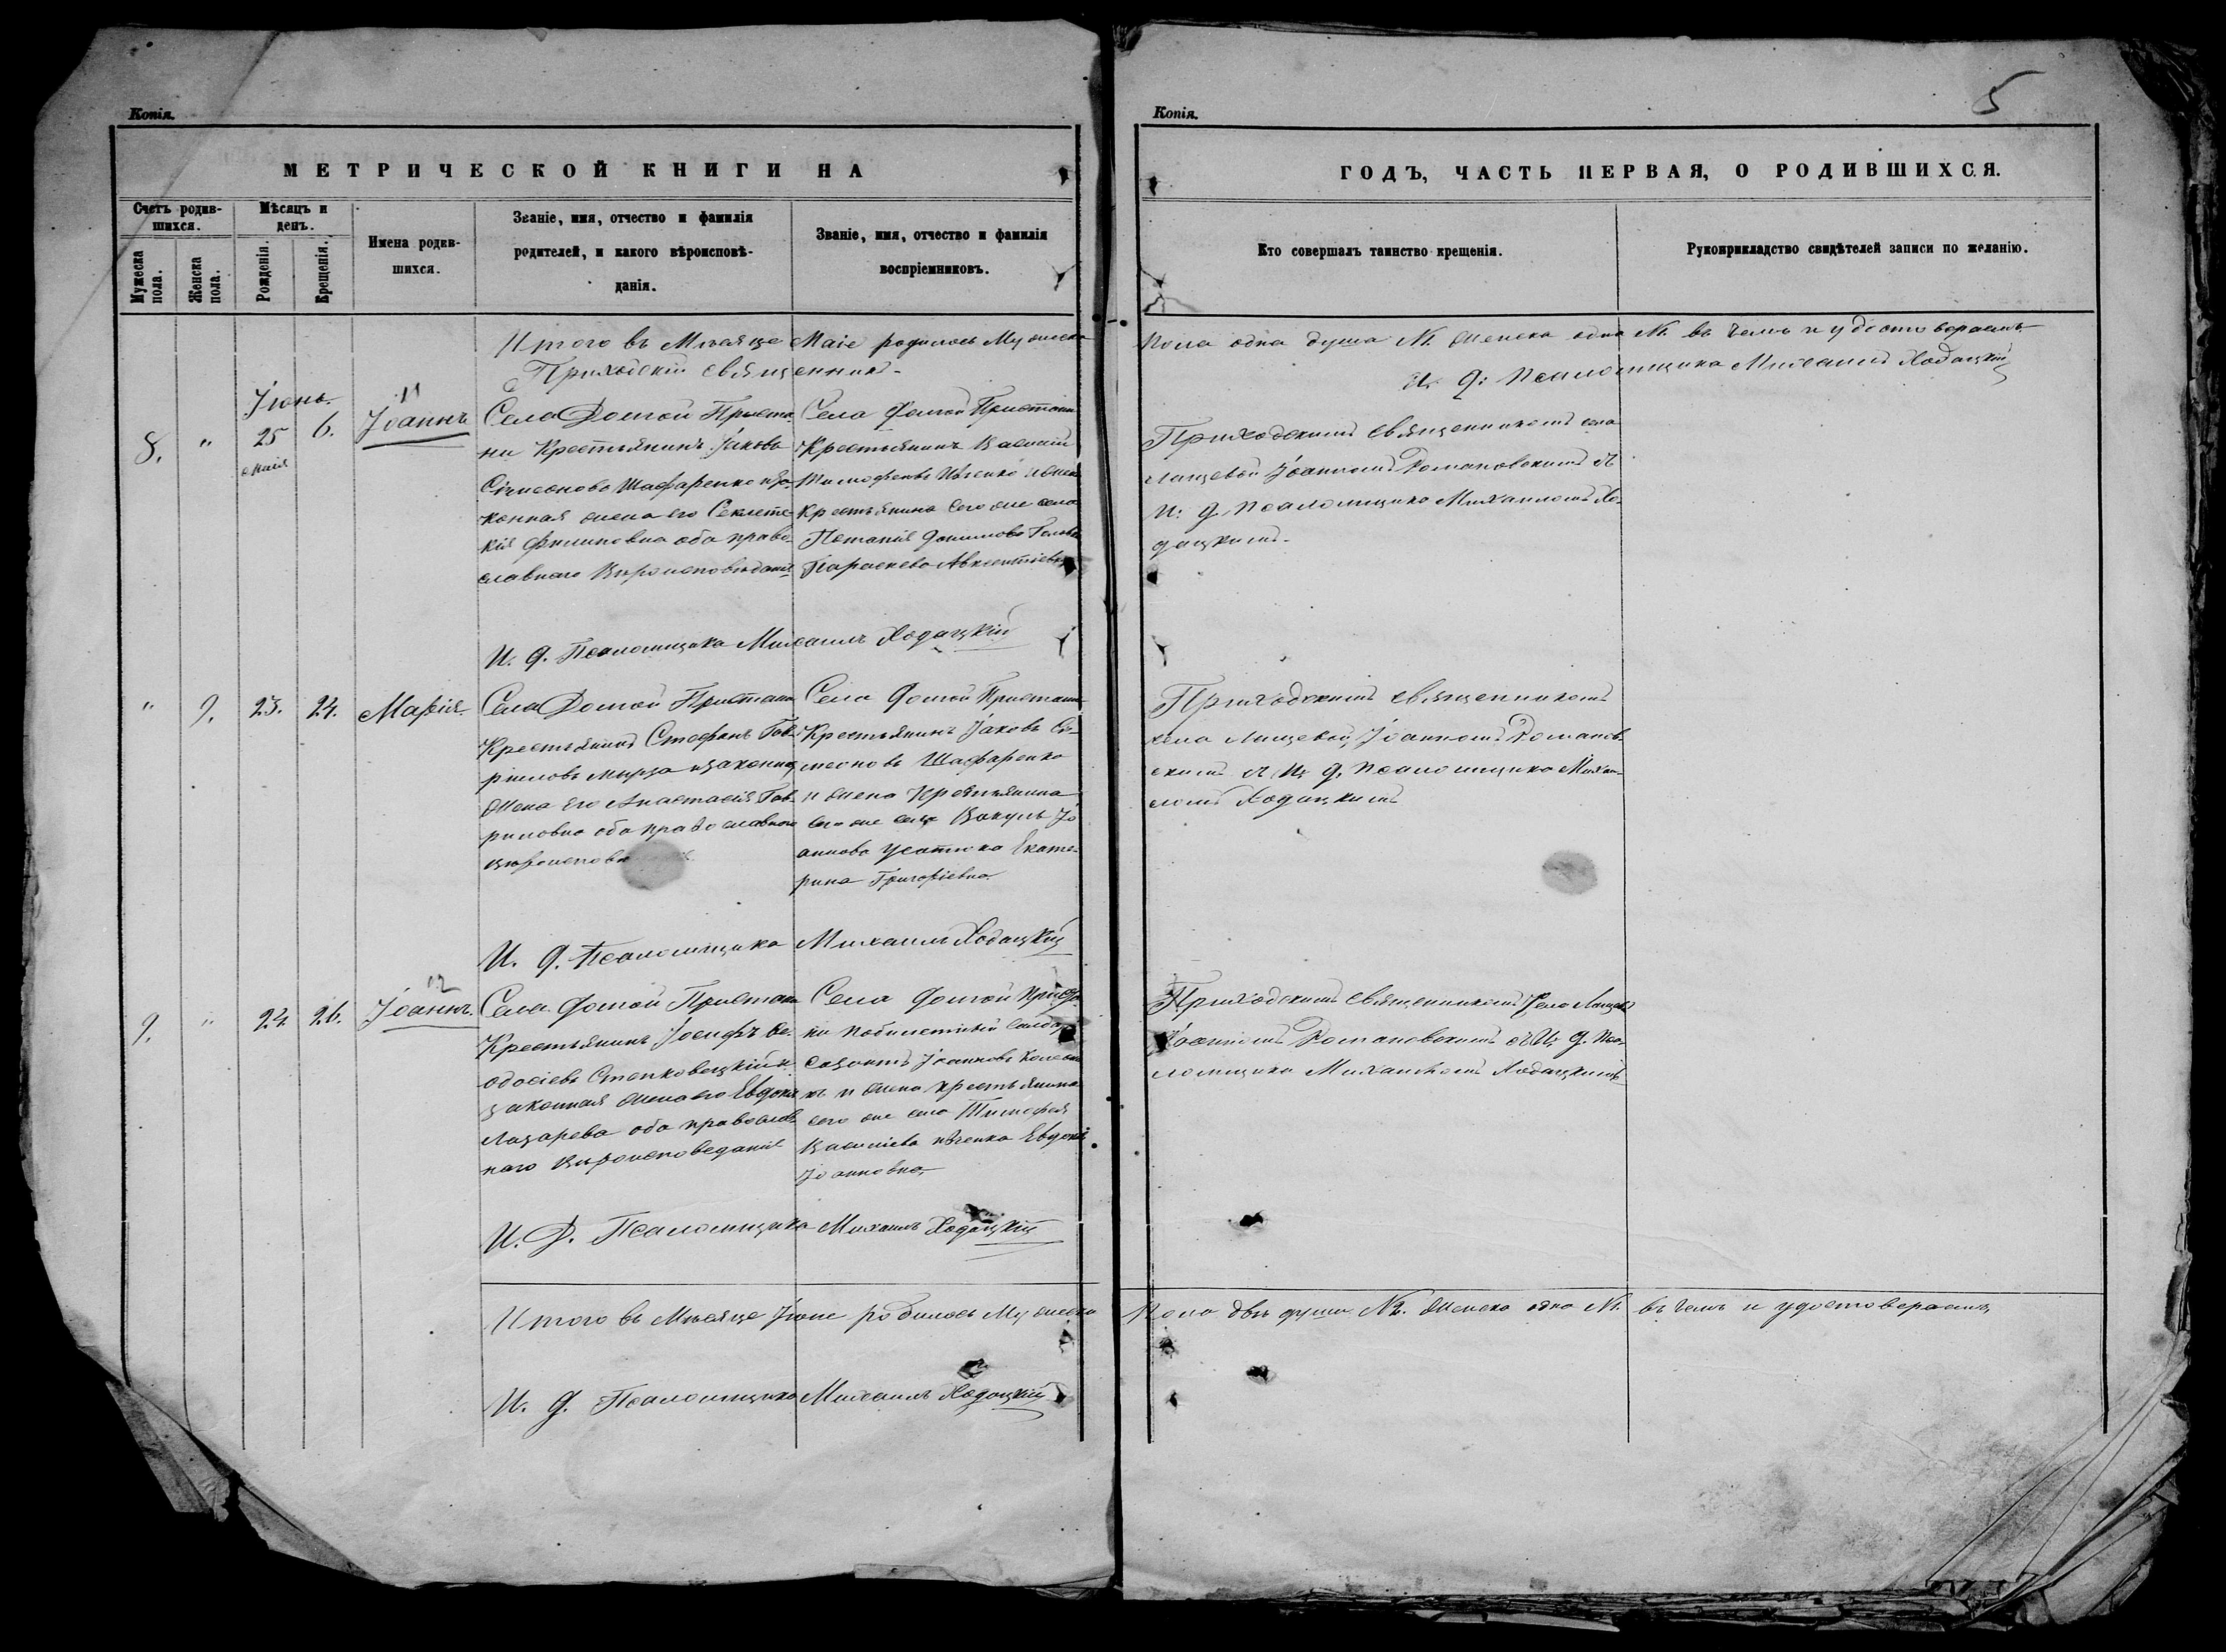 Копія.
МЕТРИЧЕСКОЙ КНИГИ НА
Счетъ родив-
шихся.
Мужеска пола.
Женска пола.
Мѣсяцъ и
день.
Рожденія.
Крещенія.
Имена родив-
шихся.
Званіе, имя, отчество и фамилія
родителей, и какого вѣроисповѣ-
данія.
Званіе, имя, отчество и фамилія
воспріемниковъ.
Итого въ Мѣсяце Маіе родилось Мужеска
Приходскій священникъ
Іюнь
11
8. " 25 6. Іоаннъ
маія
Села Долгой Приста-
ни Крестьянинъ Іаковъ
Сімеоновъ Шафаренко и за-
конная жена его Секлете-
кія Филиповна оба право-
славнаго Вѣроисповѣданія
Села Долгой Пристани
Крестьянинъ Василій
Тимофеевъ
Крестьянина сего же села
Параскева Авксентіева
И. д. Псаломщика Михаилъ Ходацкій
" 9. 23. 24. Марія.
Села Долгой Пристани
Крестьянинъ Стефанъ Гав-
ріиловъ Мырза и законная
жена его Анастасія Гав-
риловна оба православнаго
вѣроисповѣ
Села Долгой Пристани
Крестьянинъ Іаковъ Сі-
меоновъ Шафаренко
и жена Крестьянина
сего же села Вакулы Іо
аннова Усатюка Екате-
рина Григоріевна.
И. д. Псаломщика Михаилъ Ходацкій
12
9. " 24. 26. Іоаннъ.
Села Долгой Пристани
Крестьянинъ Іосифъ Ѳе-
одосіевъ Степковецкій и
законная жена его Евдокія
Лазарева оба православ-
наго Вѣроисповеданія
Села Долгой Приста-
ни побилетный солдатъ
Іоанновъ
и жена крестьянина
сего же села Тимофея
Василіева Евдокія
Іоанновна,
И. Д. Псаломщика Михаилъ Ходацкій
Итого въ Мѣсяце Іюне родилось Мужеска
И. д. Псаломщика Михаилъ Ходацкій
Копія.
5
ГОДЪ, ЧАСТЬ ПЕРВАЯ, О РОДИВШИХСЯ.
Кто совершалъ таинство крещенія.
Рукоприкладство свидѣтелей записи по желанію.
пола одна душа №1. женска одна №1. въ чемъ и удостовераемъ
И. д. Псаломщика Михаилъ Ходацкій
Приходскимъ священникомъ села
Лащевой Іоанномъ Романовскимъ съ
И. д. Псаломщика Михаиломъ Хо-
дацкимъ.
Приходскимъ священникомъ
села Лащевой, Іоанномъ Романов-
скимъ съ И. д. псаломщика Михаи-
ломъ Ходацкимъ
Приходскимъ священникомъ Села Лащевой
Іоанномъ Романовскимъ съ И. д. Пса-
ломщика Михаиломъ Ходацкимъ
пола двѣ души №2. женска одна №1. въ чемъ и удостовераемъ